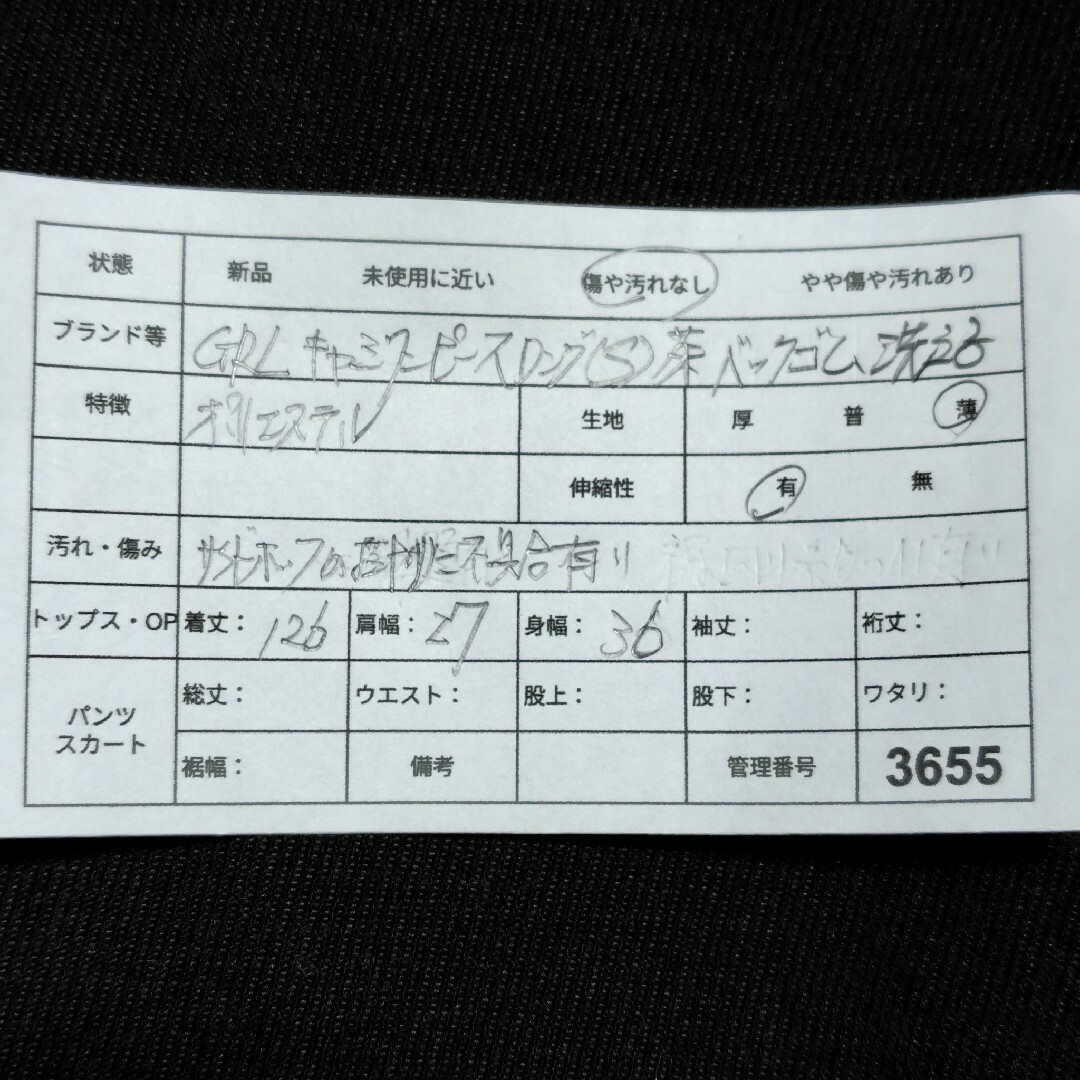 状態 新品 未使用に近い 傷や汚れなし やや傷や汚れあり
ブランド等 GRL キャミワンピース ロング(S) 茶 バックゴム
特徴 ポリエステル 生地 厚 普 薄
伸縮性 有 無
汚れ・傷み サイドホックの 不具合有り
トップス・OP 着丈: 126 肩幅: 27 身幅: 36 袖丈: 裄丈:
パンツ スカート 総丈: ウエスト: 股上: 股下: ワタリ:
裾幅: 備考 管理番号 3655